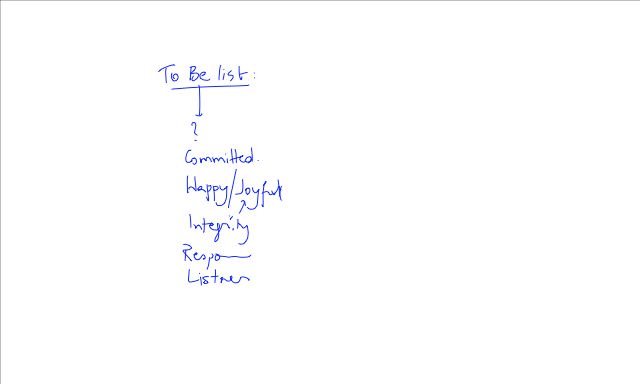 To Be list:
?
Committed.
Happy/Joyful
Integrity
Respo
Listner